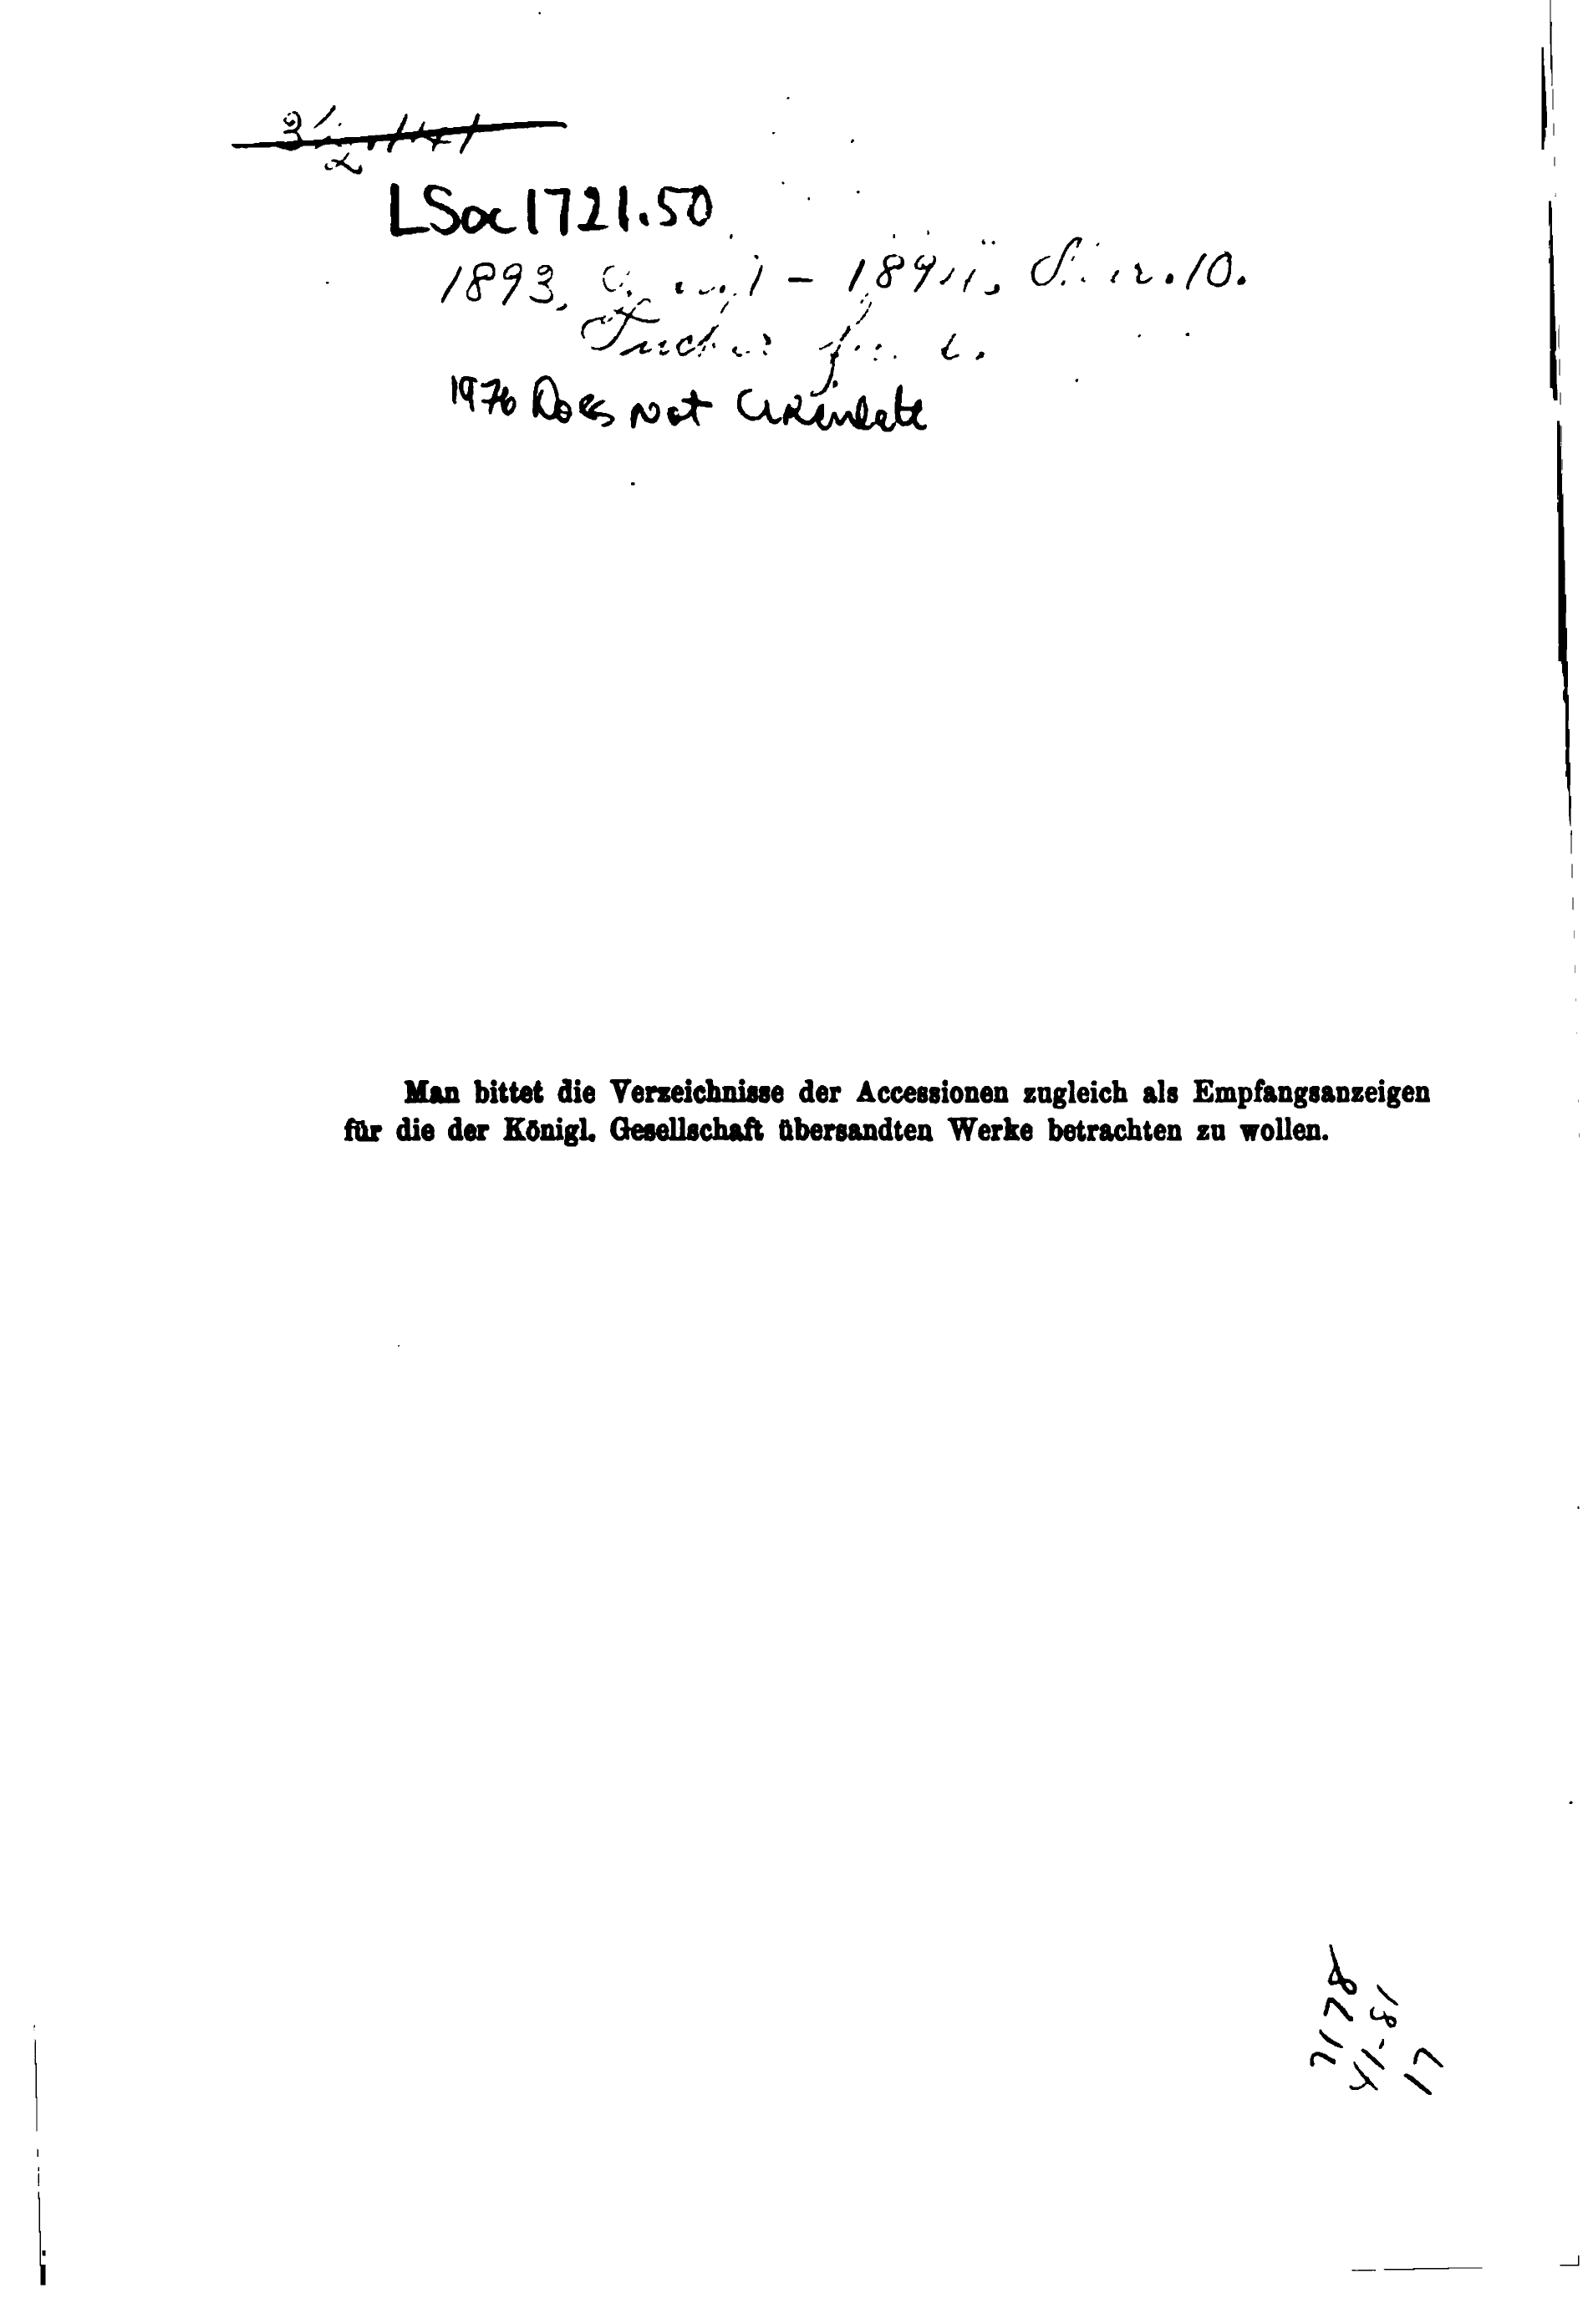 LSoc1721.50
1893,
10.
1976 Does Not Circulate
Man bittet die Verzeichnisse der Accessionen zugleich als Empfangsanzeigen
für die der Königl. Gesellschaft übersandten Werke betrachten zu wollen.
7178
41-81
17